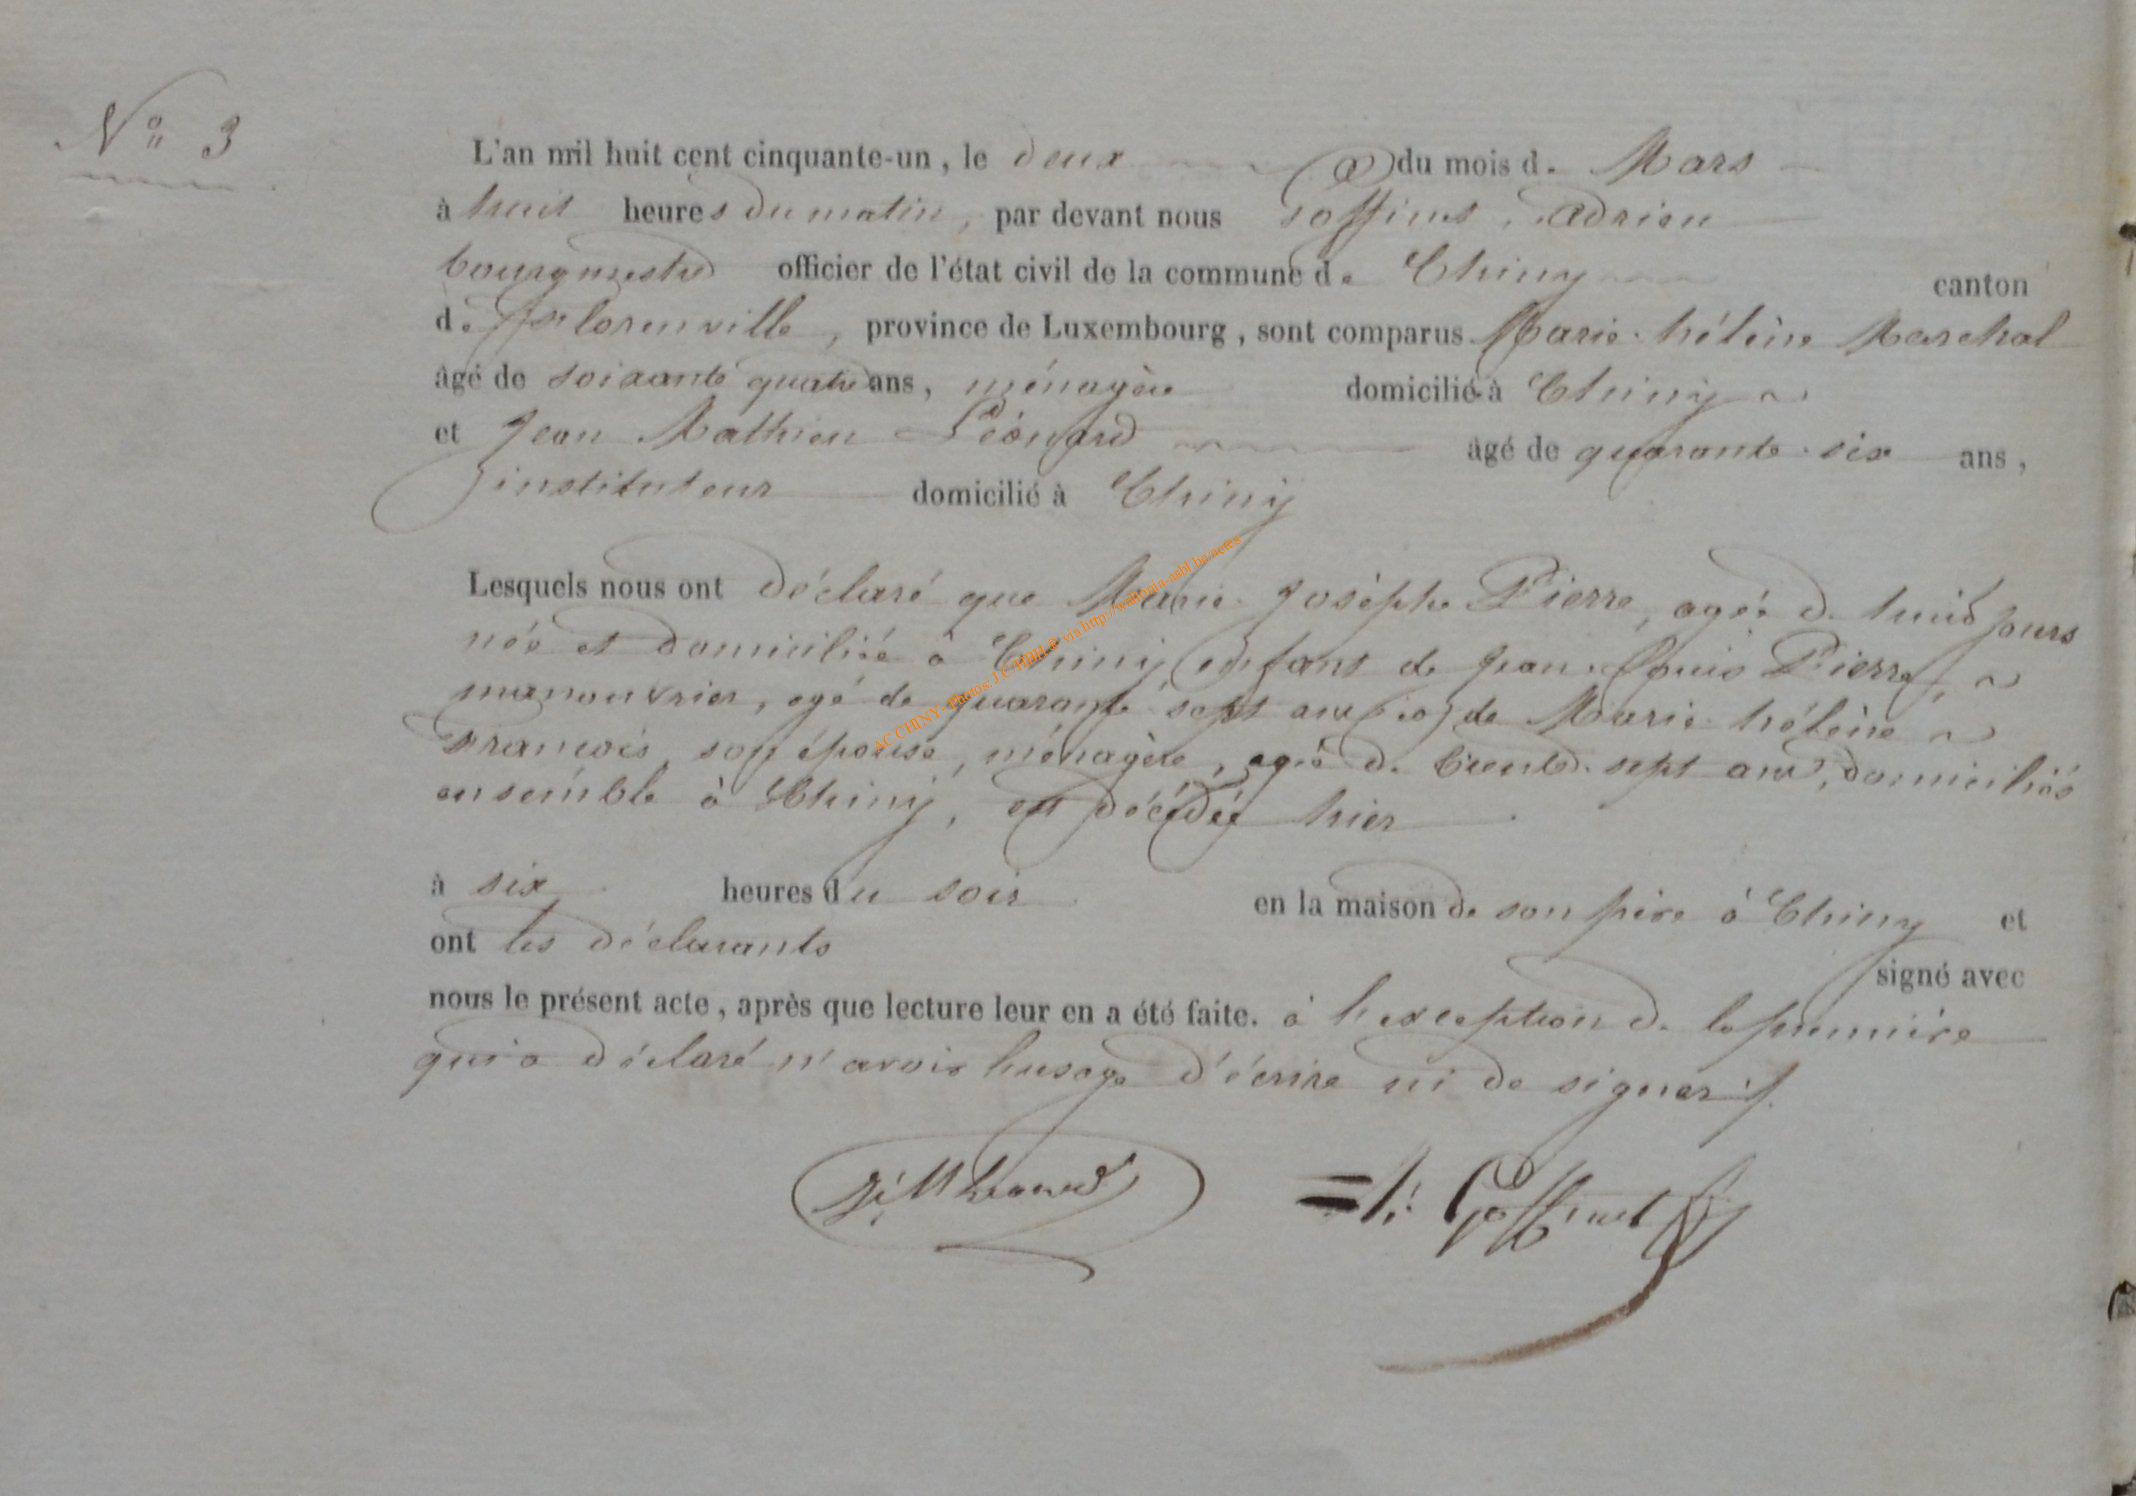 N° 3
L'an mil huit cent cinquante-un, le deux du mois de Mars
à huit heures du matin, par devant nous Goffinet, Adrien
bourgmestre officier de l'état civil de la commune de Chiny canton
de Florenville, province de Luxembourg, sont comparus Marie-hélène Marchal
âgé de soixante quatre ans, ménagère domicilié à Chiny
et Jean Mathieu Léonard âgé de quarante-six ans,
instituteur domicilié à Chiny
Lesquels nous ont déclaré que Marie-Josèphe Pierre, agée de huit jours
née et domiciliée à Chiny, enfant de Jean-Louis Pierre,
manouvrier, agé de quarante sept ans, et de Marie-hélène
François, son épouse, ménagère, agée de trente-sept ans, domiciliés
ensemble à Chiny, est décédée hier
à six heures du soir en la maison de son père à Chiny et
ont les déclarants signé avec
nous le présent acte, après que lecture leur en a été faite. à l'exception de la première
qui a déclaré n'avoir l'usage d'écrire ni de signer
J. M Léonard Goffinet
AC CHINY - Photos: J.C. via http://wallonia-asbl.be/actes